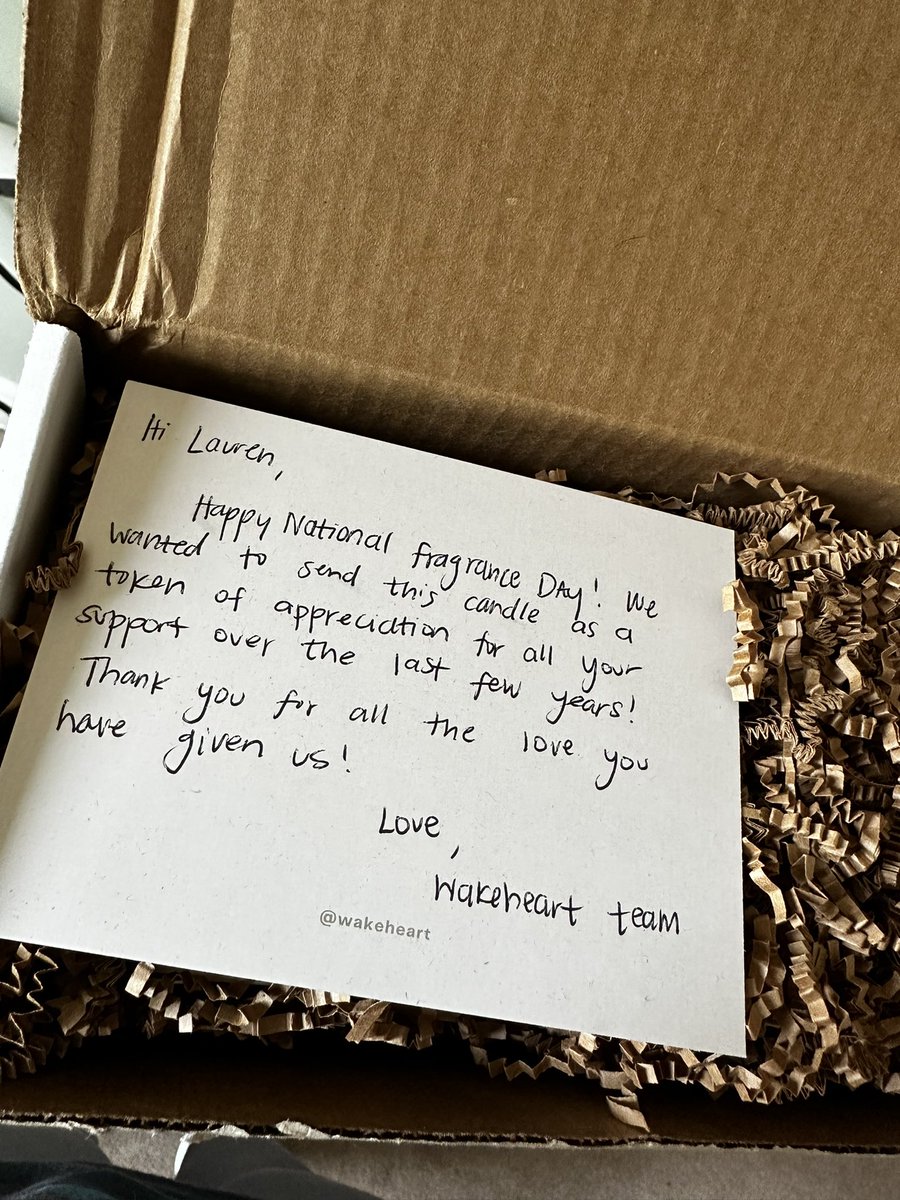 Hi Lauren,
Happy National fragrance DAy! We
wanted to send this candle as a
token of appreciation for all your
support over the last few years!
Thank you for all the love you
have given us!
Love,
Wakeheart team
@wakeheart